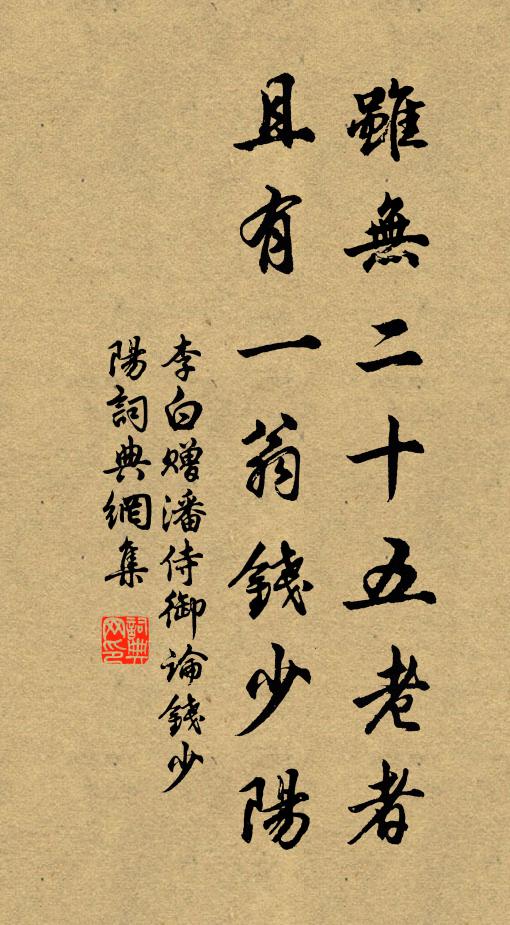 雖無二十五老者
且有一翁錢少陽
李白贈潘侍御論錢少
陽詞典網集
詞典
网印